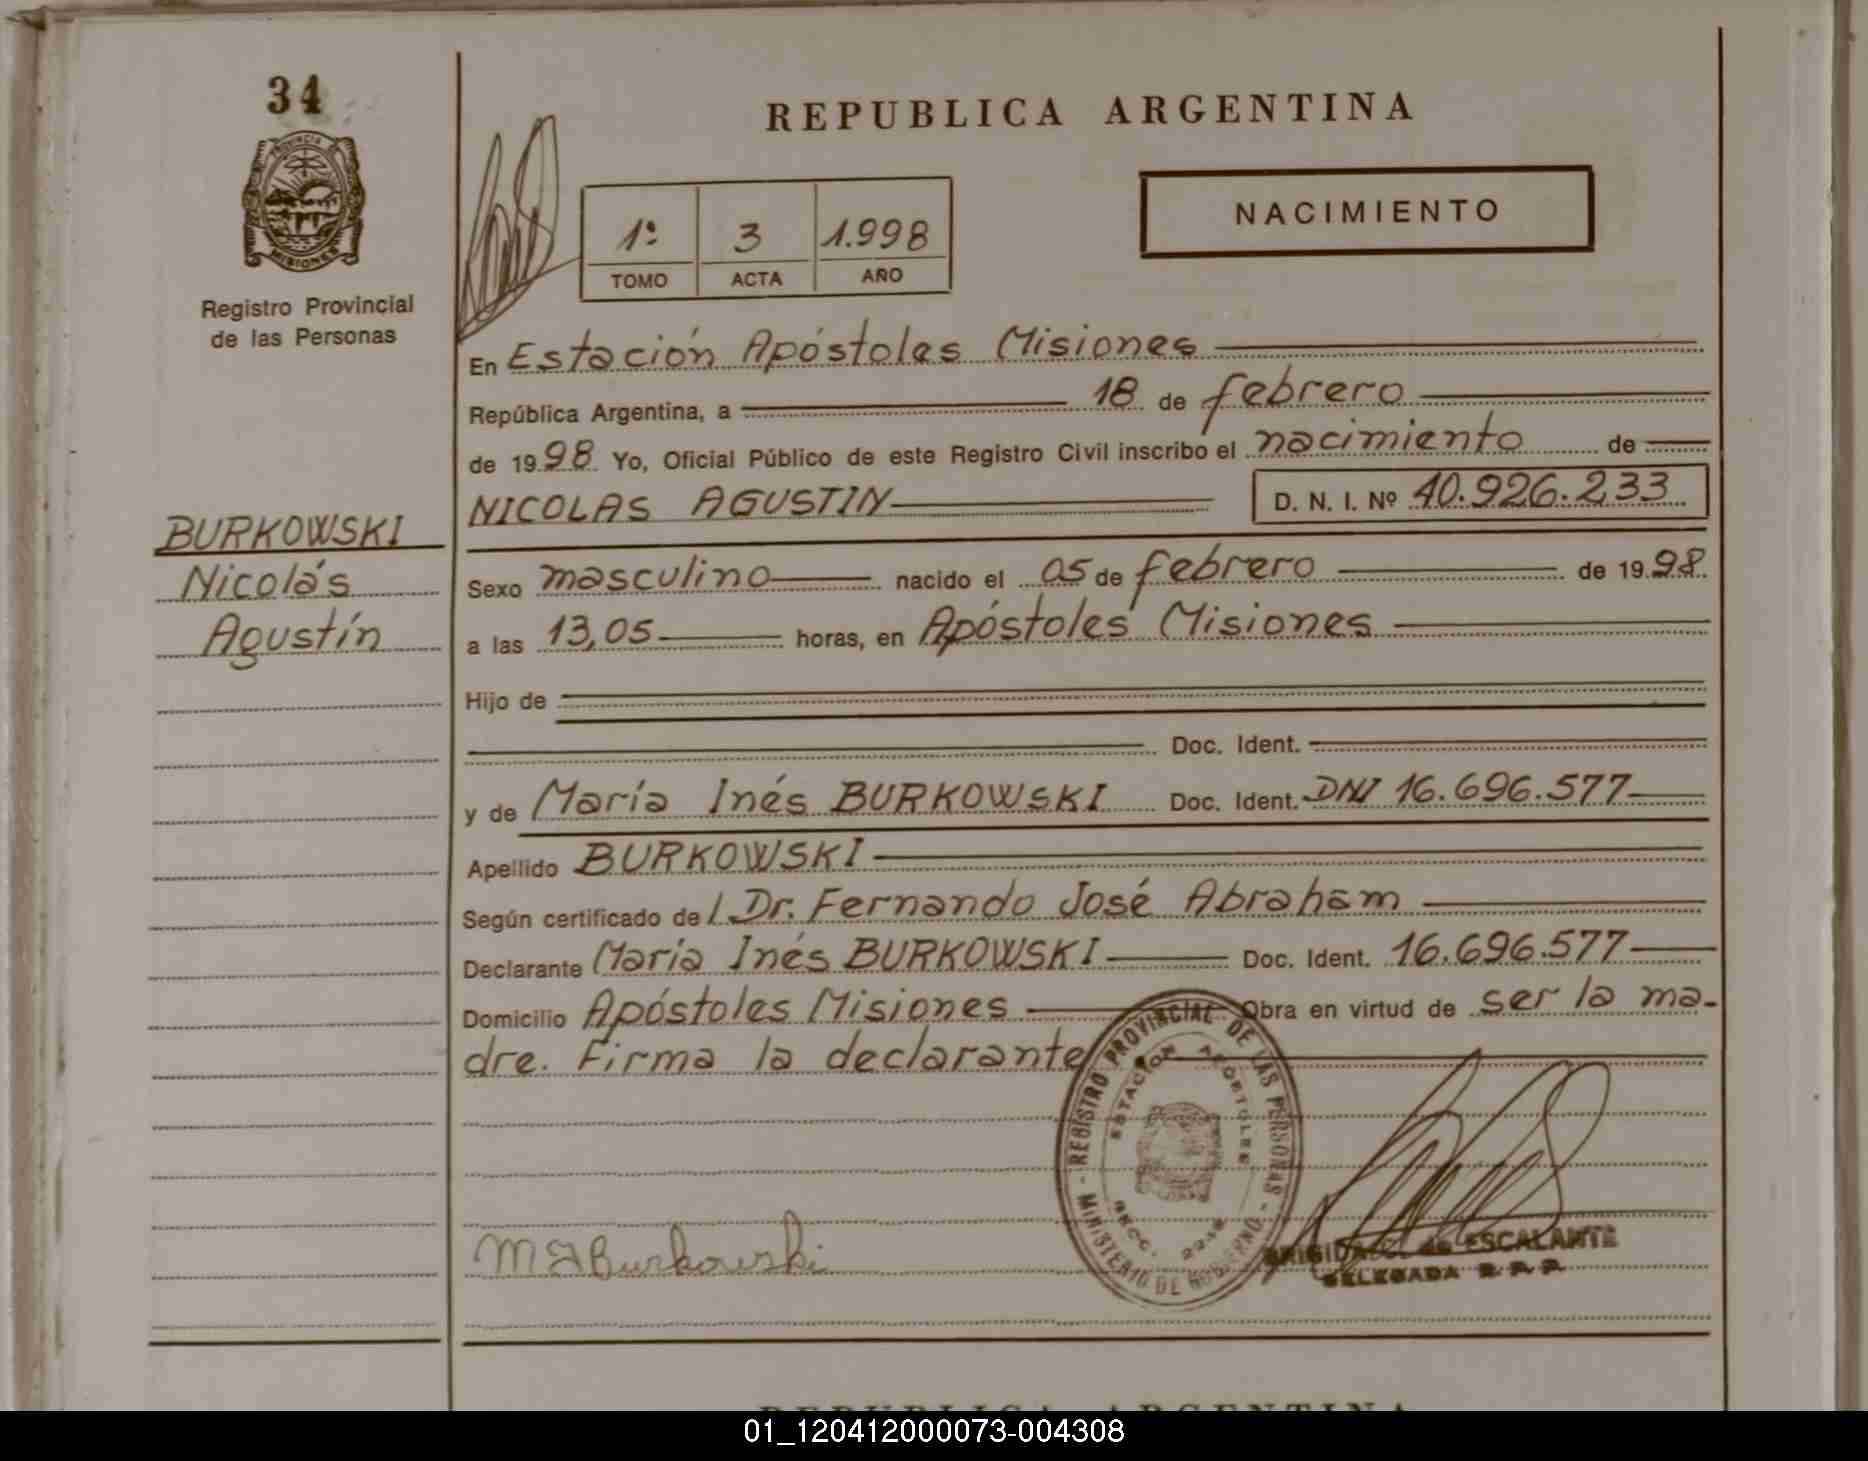 34
PROVINCIA DE
MISIONES
Registro Provincial
de las Personas
BURKOWSKI
Nicolás
Agustín
REPUBLICA ARGENTINA
NACIMIENTO
1º 3 1.998
TOMO ACTA AÑO
En Estación Apóstoles Misiones
República Argentina, a 18 de febrero
de 1998 Yo, Oficial Público de este Registro Civil inscribo el nacimiento de
NICOLAS AGUSTIN D. N. I. Nº 40.926.233
Sexo masculino nacido el 05 de febrero de 1998
a las 13,05 horas, en Apóstoles Misiones
Hijo de
Doc. Ident.
y de María Inés BURKOWSKI Doc. Ident. DNI 16.696.577
Apellido BURKOWSKI
Según certificado de / Dr. Fernando José Abraham
Declarante María Inés BURKOWSKI Doc. Ident. 16.696.577
Domicilio Apóstoles Misiones Obra en virtud de ser la ma-
dre. Firma la declarante
REGISTRO PROVINCIAL DE LAS PERSONAS
MINISTERIO DE
ESTACION APOSTOLES
SECC.
M I Burkowski
de ESCALANTE
DELEGADA R. P. P.
REPUBLICA ARGENTINA
01_120412000073-004308